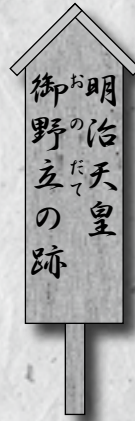 明治天皇
御野立の跡
おのだて